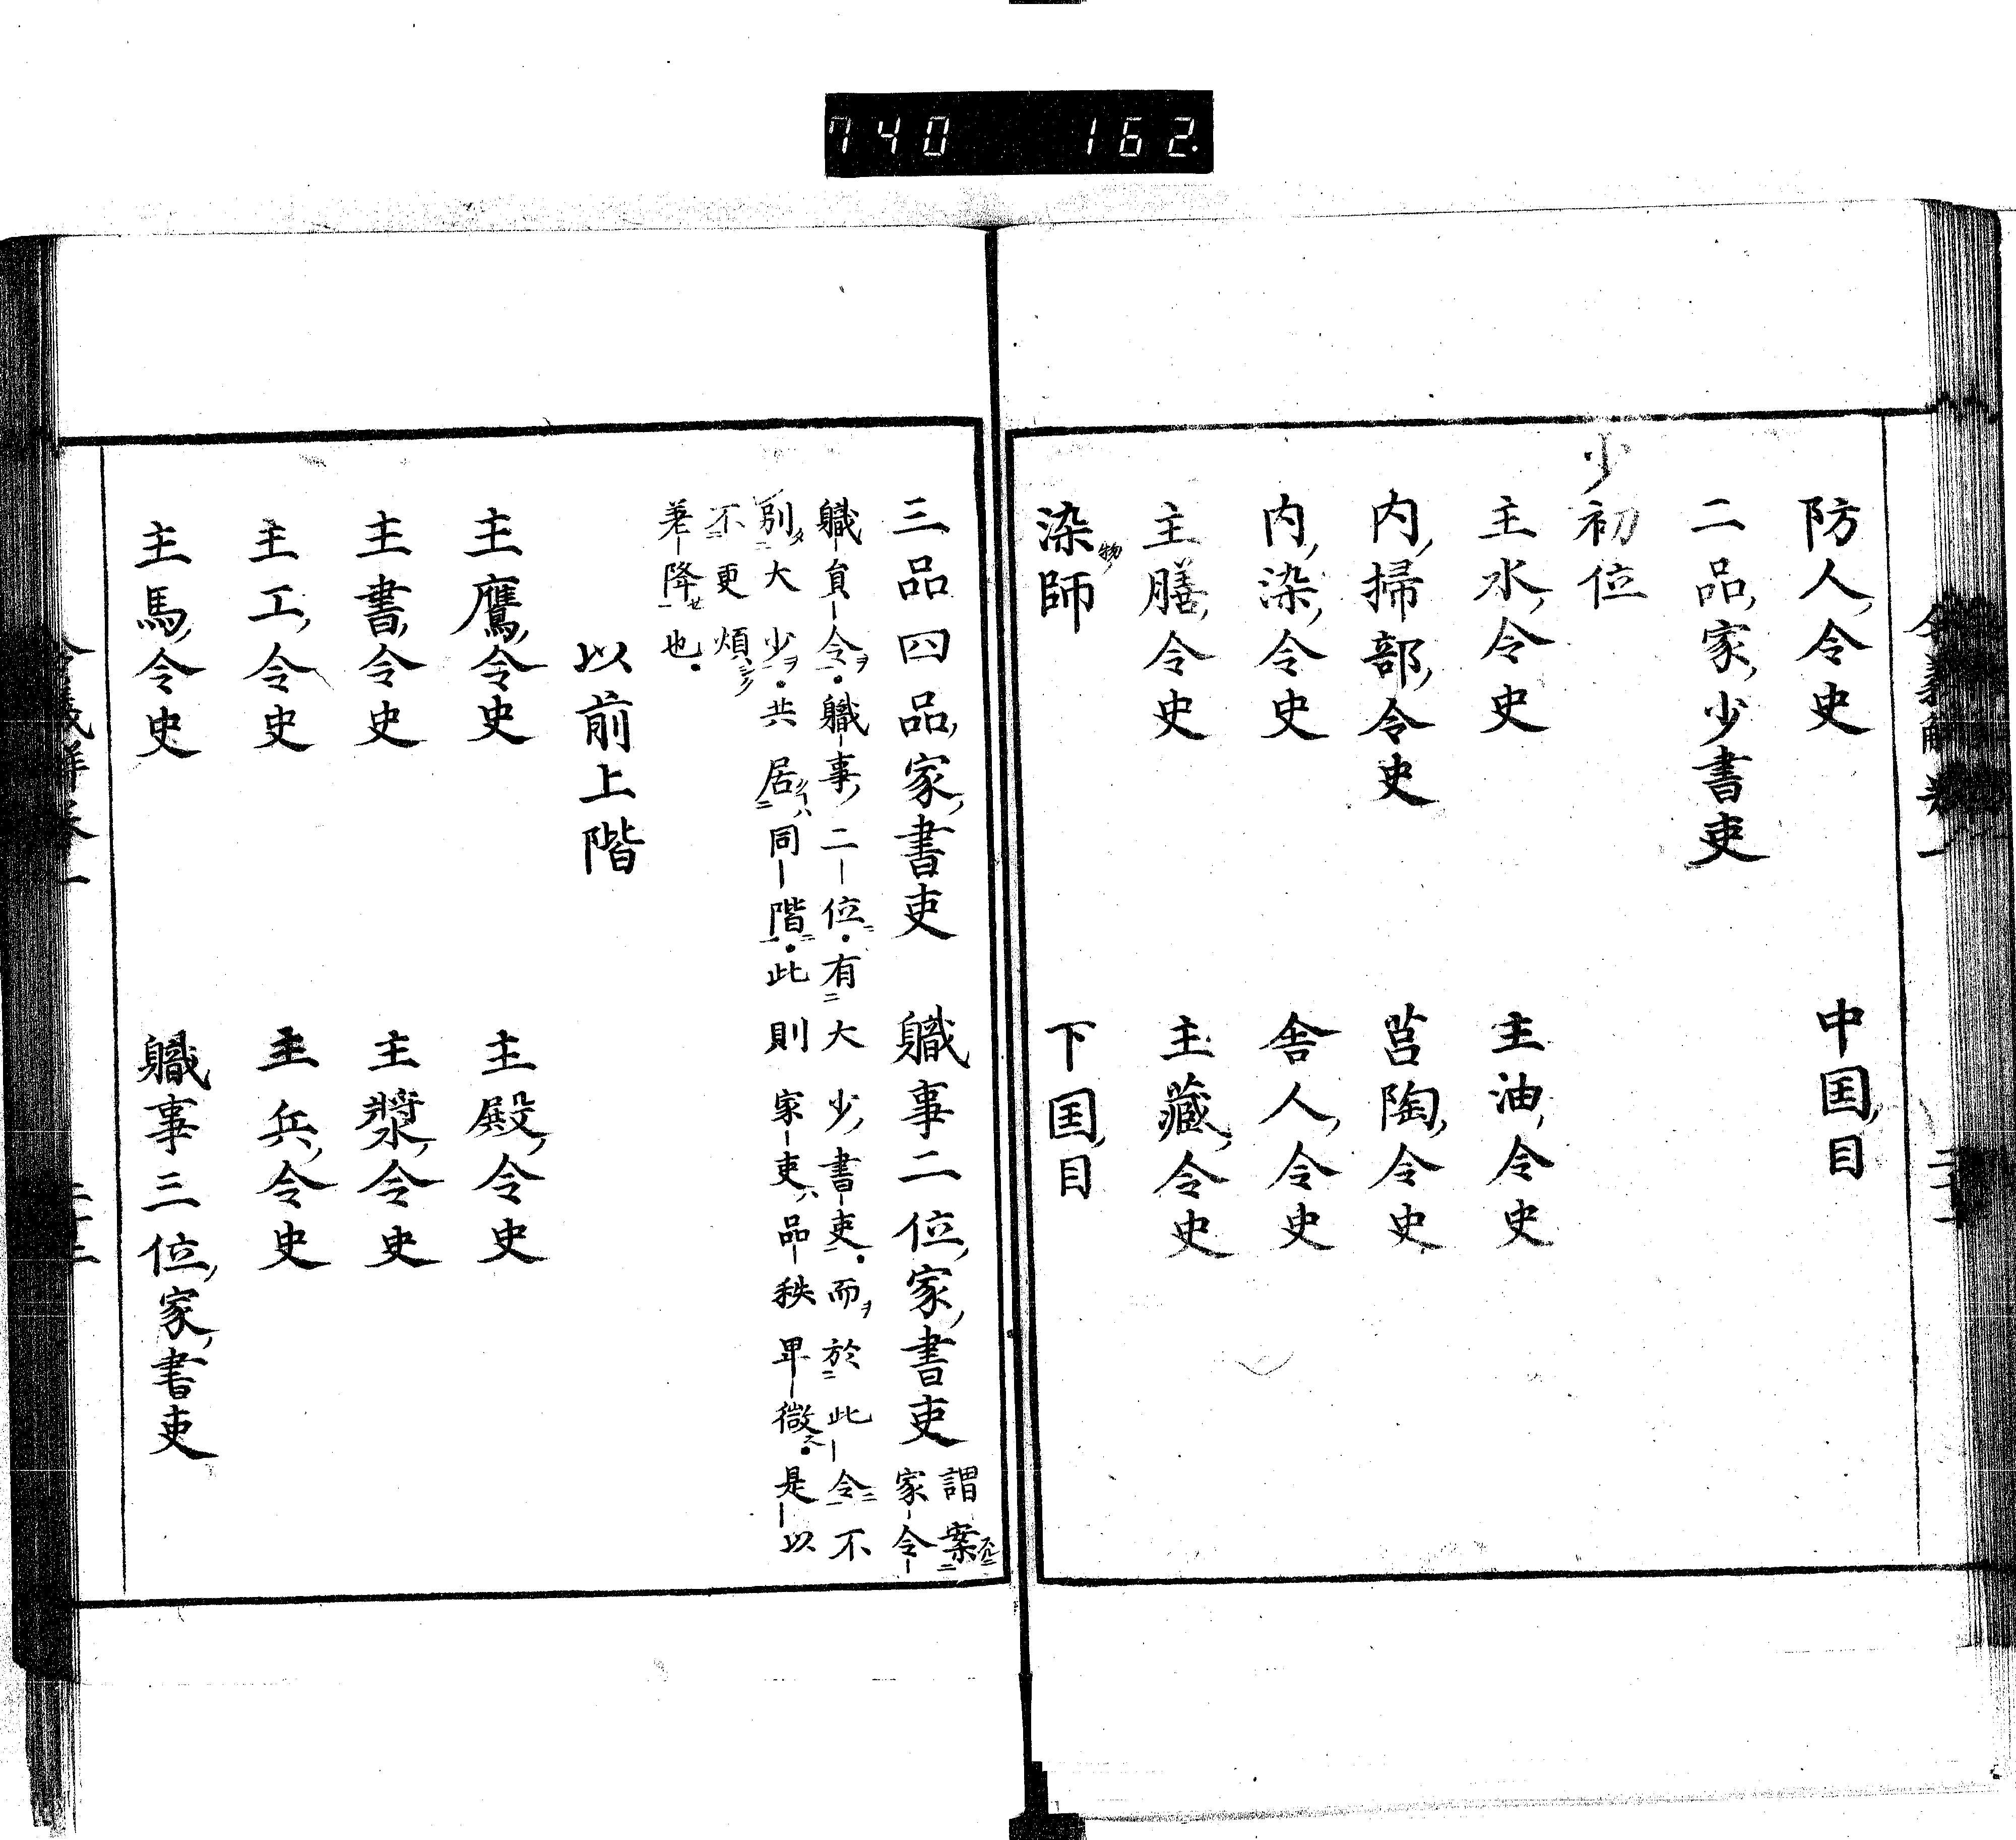 740 162.
防人令史 中国目
二品家少書吏
少初位
主水令史 主油令史
内掃部令史 筥陶令史
内染令史 舎人令史
主膳令史 主蔵令史
染師 下国目
三品四品家書吏 軄事二位家書吏 謂案
家令
軄員令軄事二位有大少書吏而於此令不
別大少共居同階此則家吏品秩卑微是以
不更煩
差降也
以前上階
主鷹令史 主殿令史
主書令史 主漿令史
主工令史 主兵令史
主馬令史 軄事三位家書吏